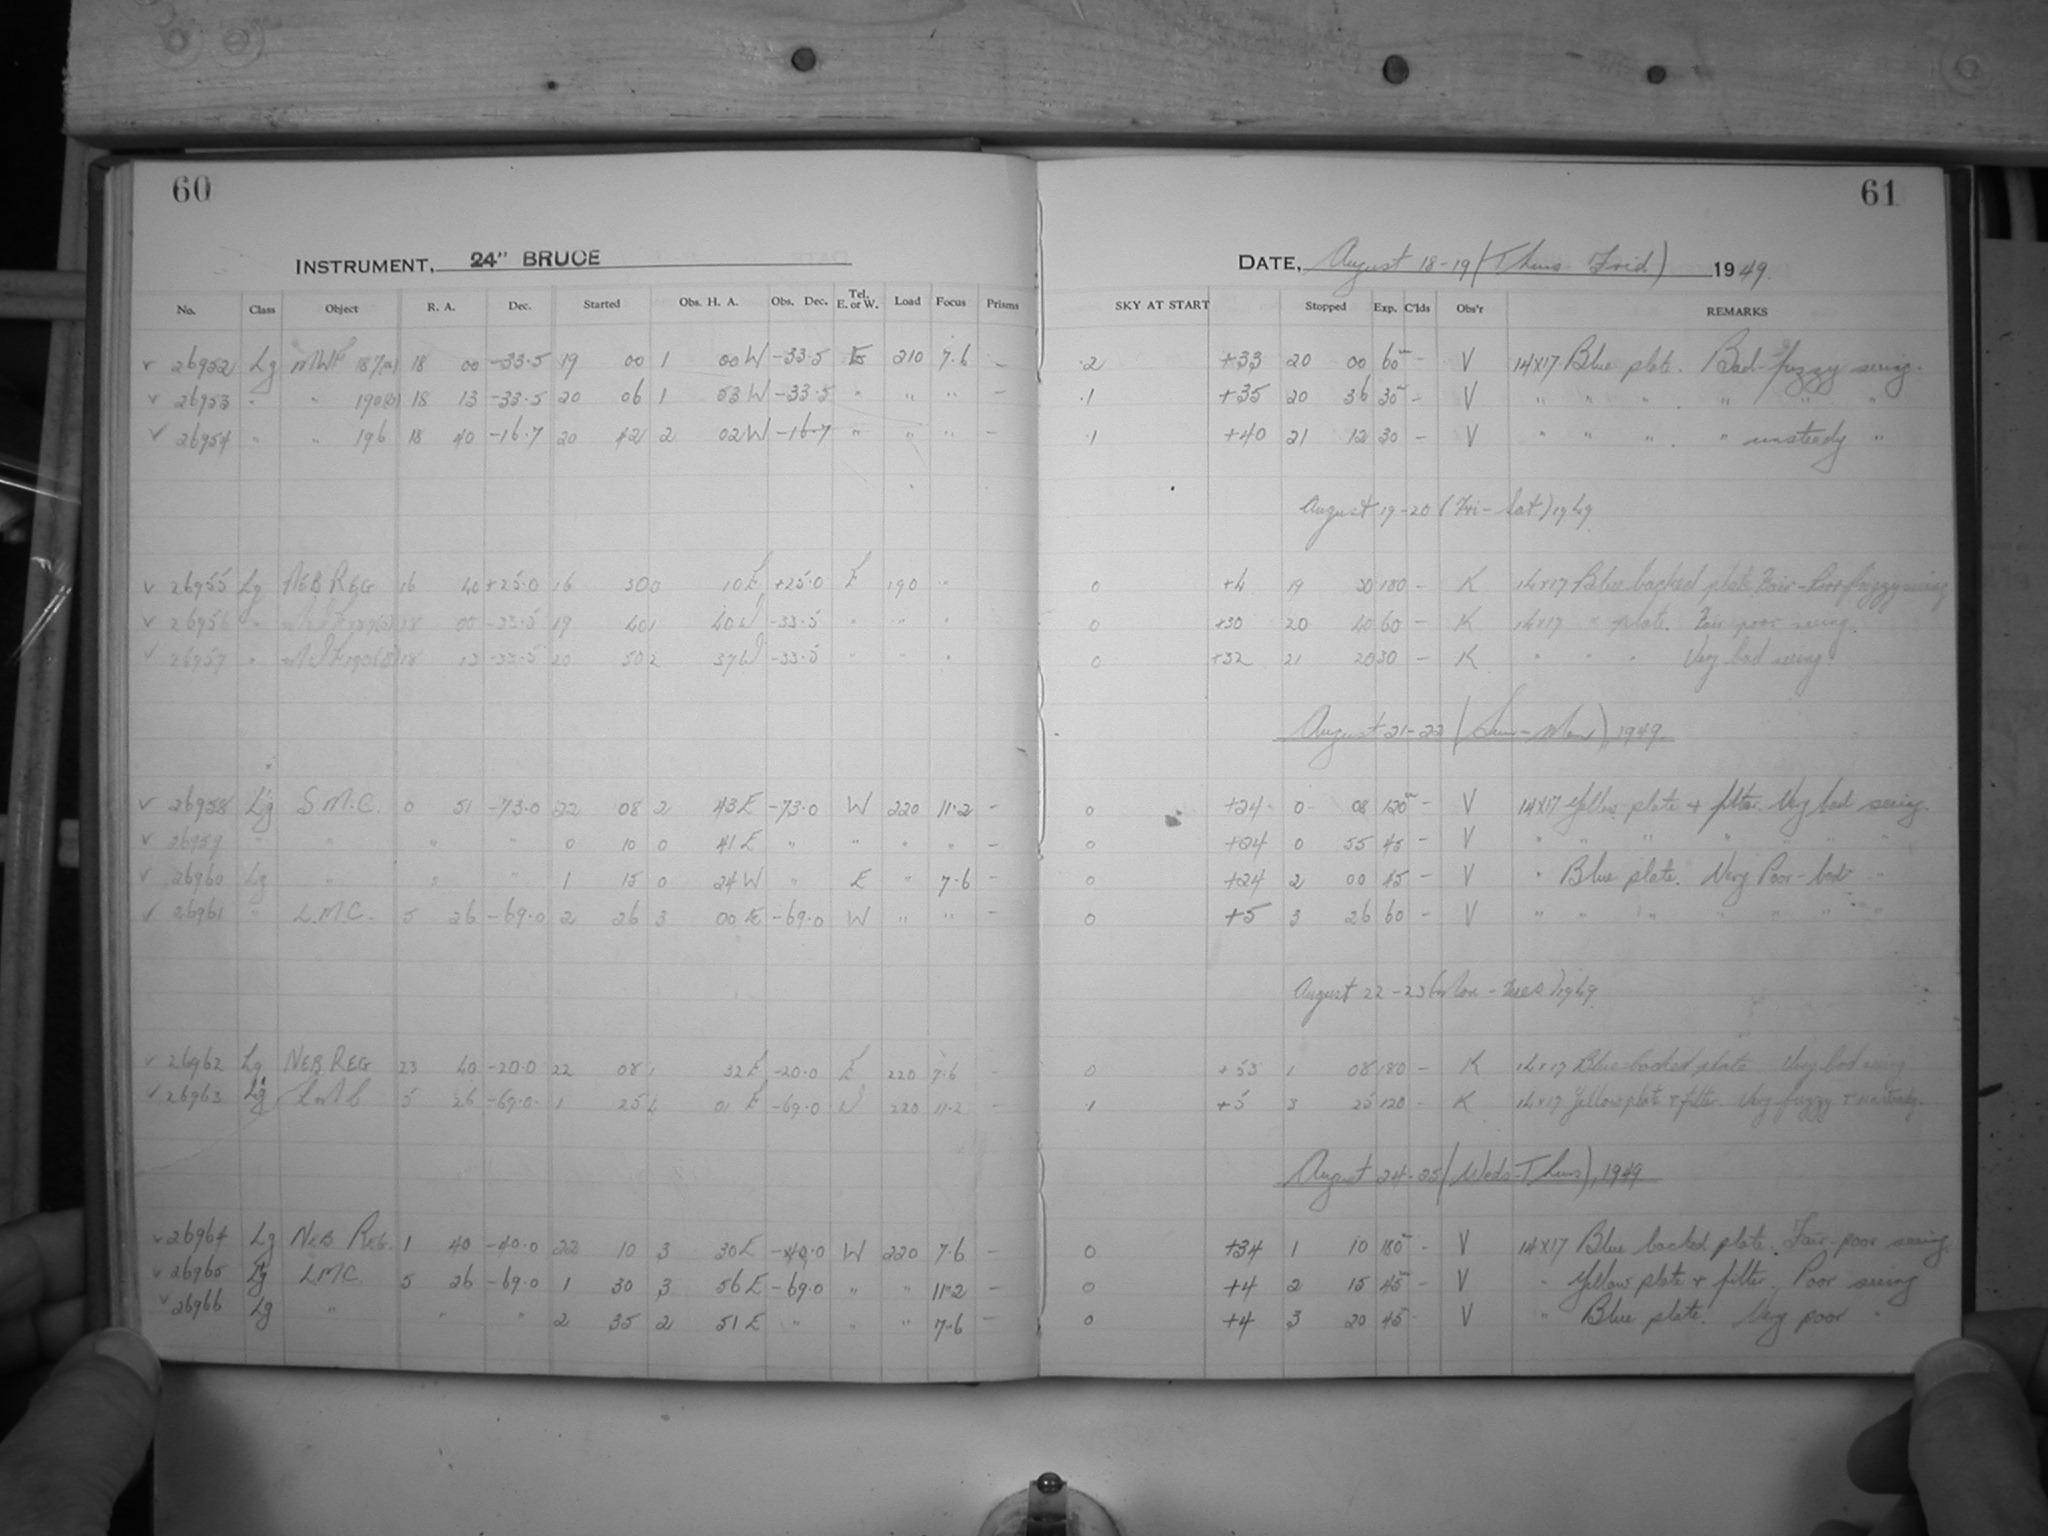 60
61
INSTRUMENT, 24" BRUCE
DATE, August 18-19 (Thurs-Frid) 1949.
No. Class Object R. A. Dec. Started Obs. H. A. Obs. Dec. Tel. E. or W. Load Focus Prisms SKY AT START Stopped Exp. C'lds Obs'r REMARKS
v 26952 Lg MWF 187(a) 18 00 -33.5 19 00 1 00 W -33.5 E 210 7.6 - .2 +33 20 00 60 - V 14x17 Blue plate. Bad-fuzzy seeing.
v 26953 " " 190(b) 18 13 -33.5 20 06 1 53 W -33.5 " " " - .1 +35 20 36 30 - V " " " " " "
v 26954 " " 196 18 40 -16.7 20 42 2 02 W -16.7 " " " - .1 +40 21 12 30 - V " " " " unsteady "
August 19-20 (Fri-Sat) 1949
v 26955 Lg NEB REG 16 40 +25.0 16 30 0 10 E +25.0 E 190 " 0 +4 19 30 180 - K 14x17 Blue backed plate. Fair-Poor fuzzy seeing
v 26956 " 18 00 -33.5 19 40 1 40 W -33.5 " " " 0 +30 20 40 60 - K 14x17 " plate. Fair poor seeing.
v 26957 " 18 13 -33.5 20 50 2 37 W -33.5 " " " 0 +32 21 20 30 - K " " " Very bad seeing.
August 21-22 (Sun-Mon), 1949.
v 26958 Lg S.M.C. 0 51 -73.0 22 08 2 43 E -73.0 W 220 11.2 - 0 +24 0 08 120 - V 14x17 Yellow plate + filter. Very bad seeing.
v 26959 " " " " 0 10 0 41 E " " " " - 0 +24 0 55 45 - V " " " " " " "
v 26960 Lg " " " 1 15 0 24 W " E " 7.6 - 0 +24 2 00 45 - V " Blue plate. Very Poor-bad "
v 26961 " L.M.C. 5 26 -69.0 2 26 3 00 E -69.0 W " " - 0 +5 3 26 60 - V " " " " " " "
August 22-23 (Mon-Tues) 1949.
v 26962 Lg NEB REG 23 40 -20.0 22 08 1 32 E -20.0 E 220 7.6 - 0 +53 1 08 180 - K 14x17 Blue backed plate Very bad seeing
v 26963 Lg LMC 5 26 -69.0 1 25 4 01 E -69.0 W 220 11.2 - .1 +5 3 25 120 - K 14x17 Yellow plate + filter. Very fuzzy + unsteady.
August 24-25 (Weds-Thurs), 1949
v 26964 Lg NEB REG. 1 40 -40.0 22 10 3 30 E -40.0 W 220 7.6 - 0 +34 1 10 180 - V 14x17 Blue backed plate. Fair-poor seeing.
v 26965 Lg LMC. 5 26 -69.0 1 30 3 56 E -69.0 " " 11.2 - 0 +4 2 15 45 - V " Yellow plate + filter. Poor seeing
v 26966 Lg " " " 2 35 2 51 E " " " 7.6 - 0 +4 3 20 45 - V " Blue plate. Very poor "